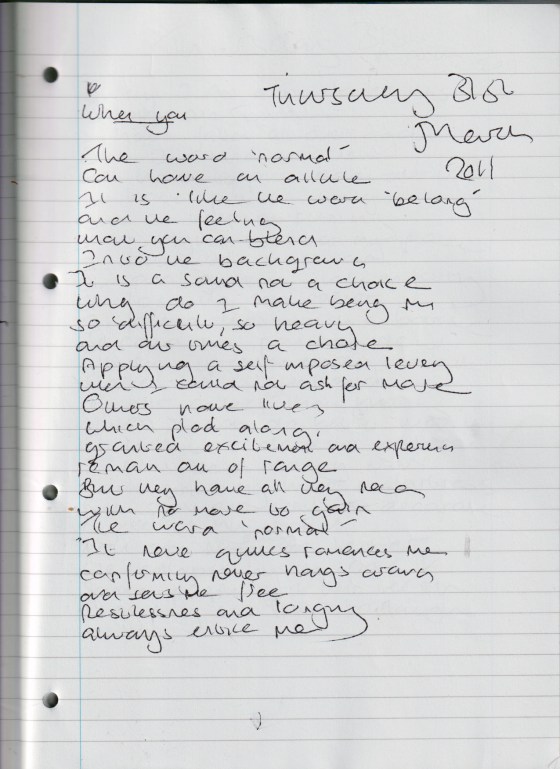 Thursday 31st
When you
March
2011
The word 'normal'
Can have an allure
It is 'like the word 'belong'
and the feeling
when you can blend
Into the background
It is a sound not a choice
Why do I make being me
so difficult, so heavy
and at times a chore
Applying a self imposed levey
when I could not ask for more
Others have lives
which plod along,
granted excitement and experiences
remain out of range
But they have all they need
with no more to gain
The word 'normal'
It never quites romances me
conforming never hangs around
and sets me free
Restlessness and longing
always entice me